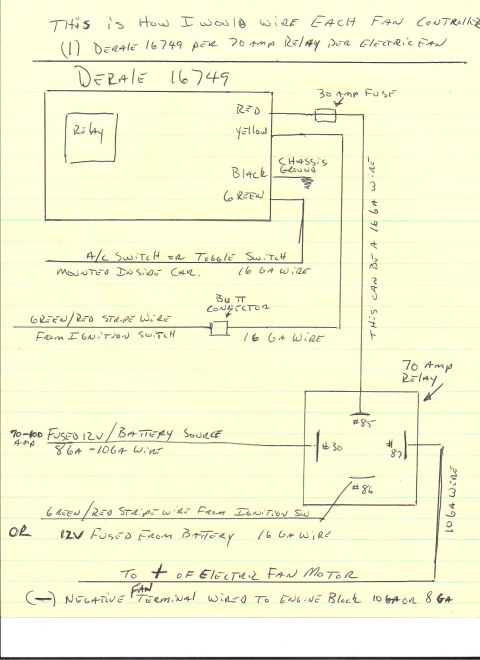 THIS IS HOW I WOULD WIRE EACH FAN CONTROLLER
(1) DERALE 16749 PER 70 AMP RELAY PER ELECTRIC FAN
DERALE 16749
30 AMP FUSE
RED
RELAY
YELLOW
CHASSIS
GROUND
BLACK
GREEN
THIS CAN BE A 16 GA WIRE
A/C SWITCH OR TOGGLE SWITCH
MOUNTED INSIDE CAR. 16 GA WIRE
BUTT
CONNECTOR
GREEN/RED STRIPE WIRE
FROM IGNITION SWITCH 16 GA WIRE
70 AMP
RELAY
#85
70-100 AMP FUSED 12V/BATTERY SOURCE
8GA - 10GA WIRE
#30
#87
#86
10 GA WIRE
GREEN/RED STRIPE WIRE FROM IGNITION SW
OR 12V FUSED FROM BATTERY 16 GA WIRE
TO + OF ELECTRIC FAN MOTOR
(-) NEGATIVE FAN TERMINAL WIRED TO ENGINE BLOCK 10GA OR 8GA